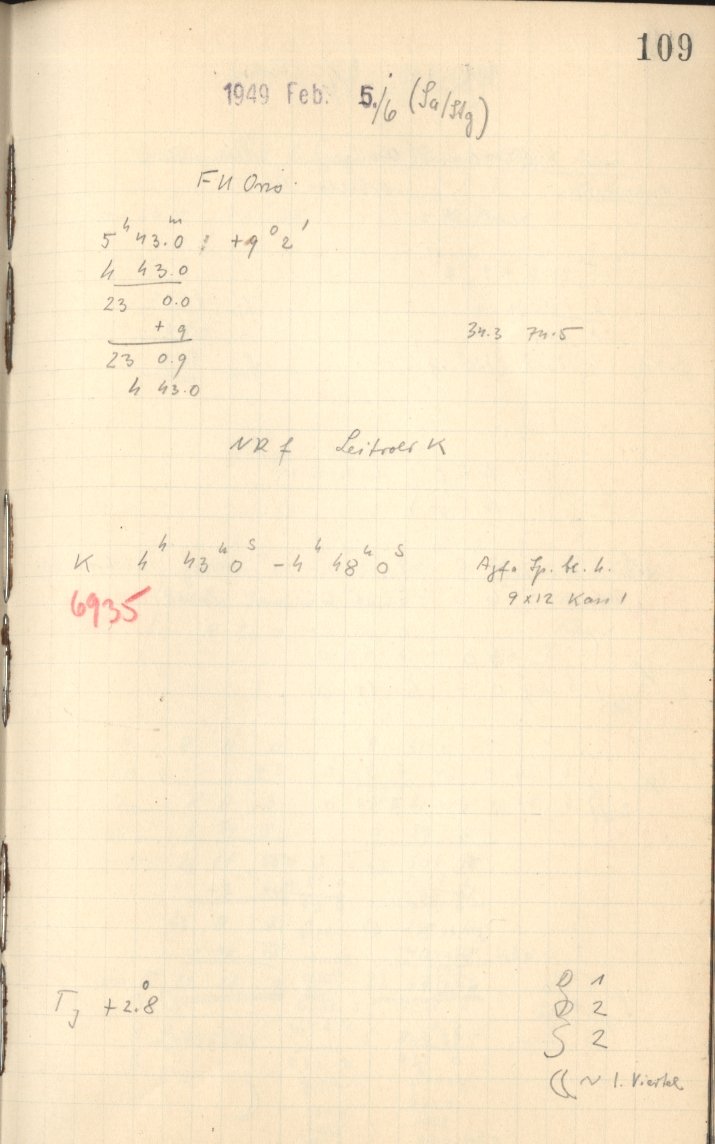 109
1949 Feb. 5./6 (Sa/Stg)
FU Orio.
5ʰ 43.0ᵐ ; +9° 2'
4 43.0
23 0.0
+ 9
23 0.9
4 43.0
34.3 74.5
NR f Leitrohr K
K 4ʰ 43ᵐ 0ˢ - 4ʰ 48ᵐ 0ˢ
Agfa Sp. bl. h.
9x12 Kass 1
6935
T +2.8°
1
2
2
~ 1. Viertel